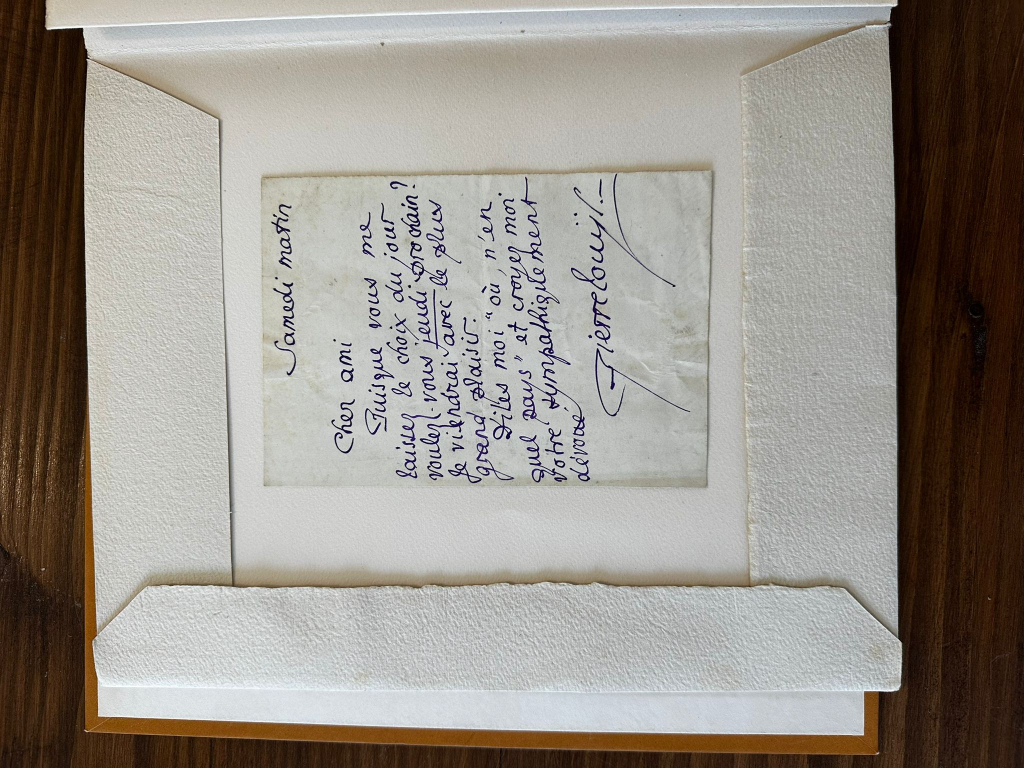 Samedi matin
Cher ami
Puisque vous me
laissez le choix du jour
voulez-vous jeudi prochain?
Je viendrai avec le plus
grand plaisir.
Dites moi "où, n'en
quel pays" et croyez moi
votre sympathiquement
dévoué
Pierre Louÿs